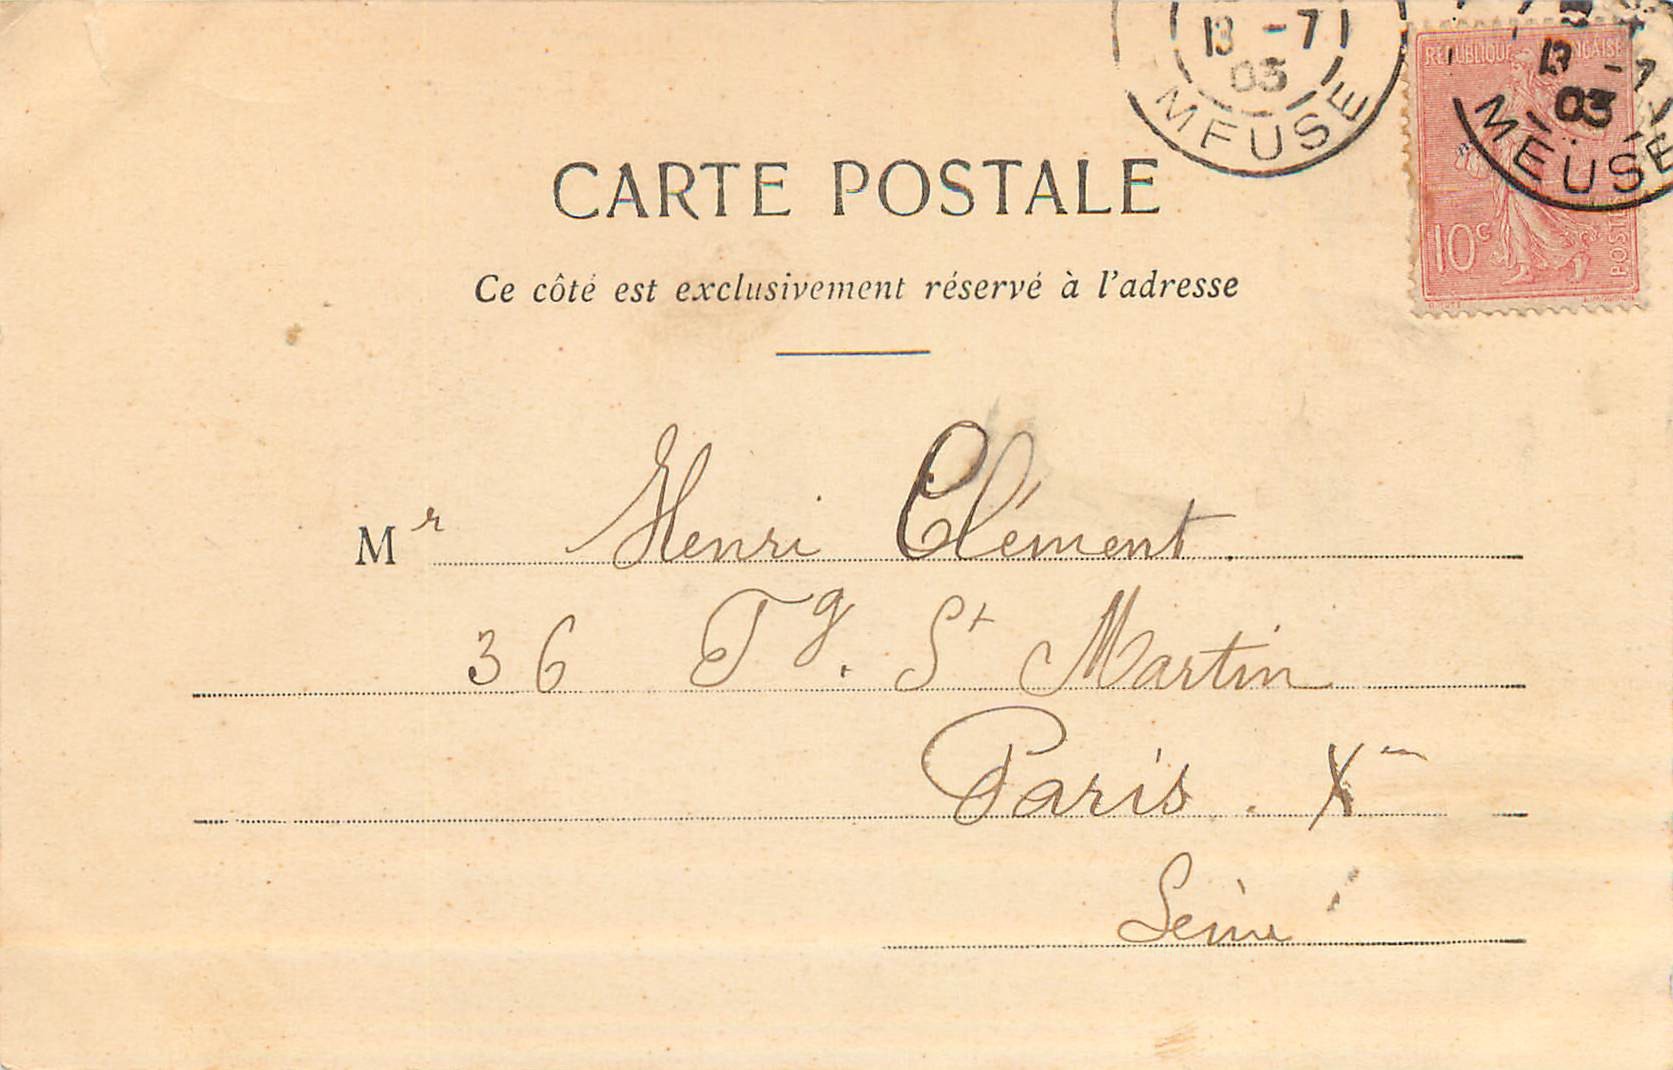 13 -7
03
MEUSE
13 -7
03
MEUSE
REPUBLIQUE FRANÇAISE
10c
POSTES
CARTE POSTALE
Ce côté est exclusivement réservé à l'adresse
Mr Henri Clément.
36 Fg. St Martin
Paris. X
Seine